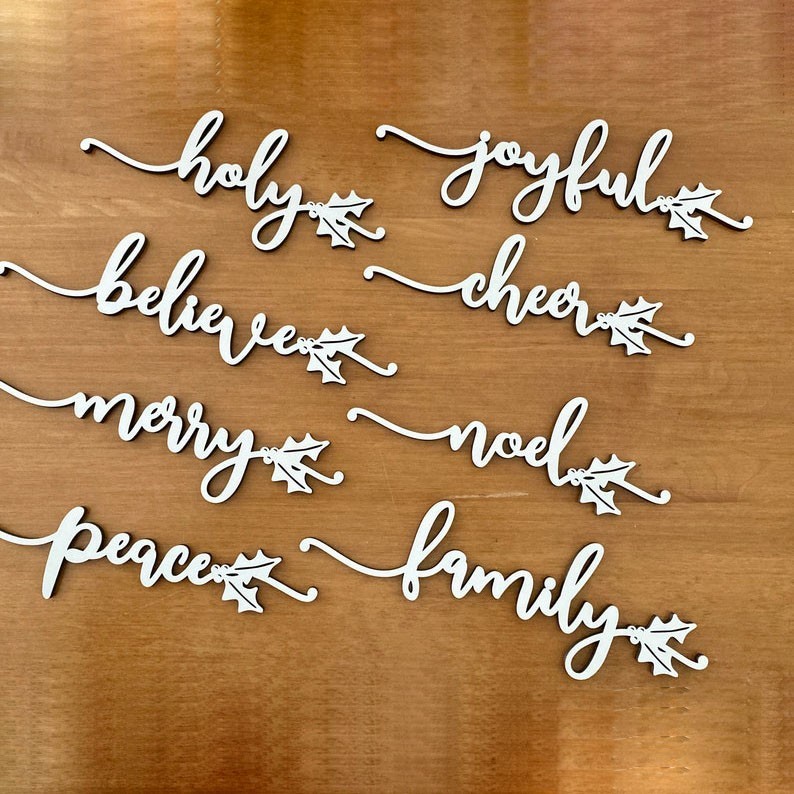 holy
joyful
believe
cheer
merry
noel
peace
family